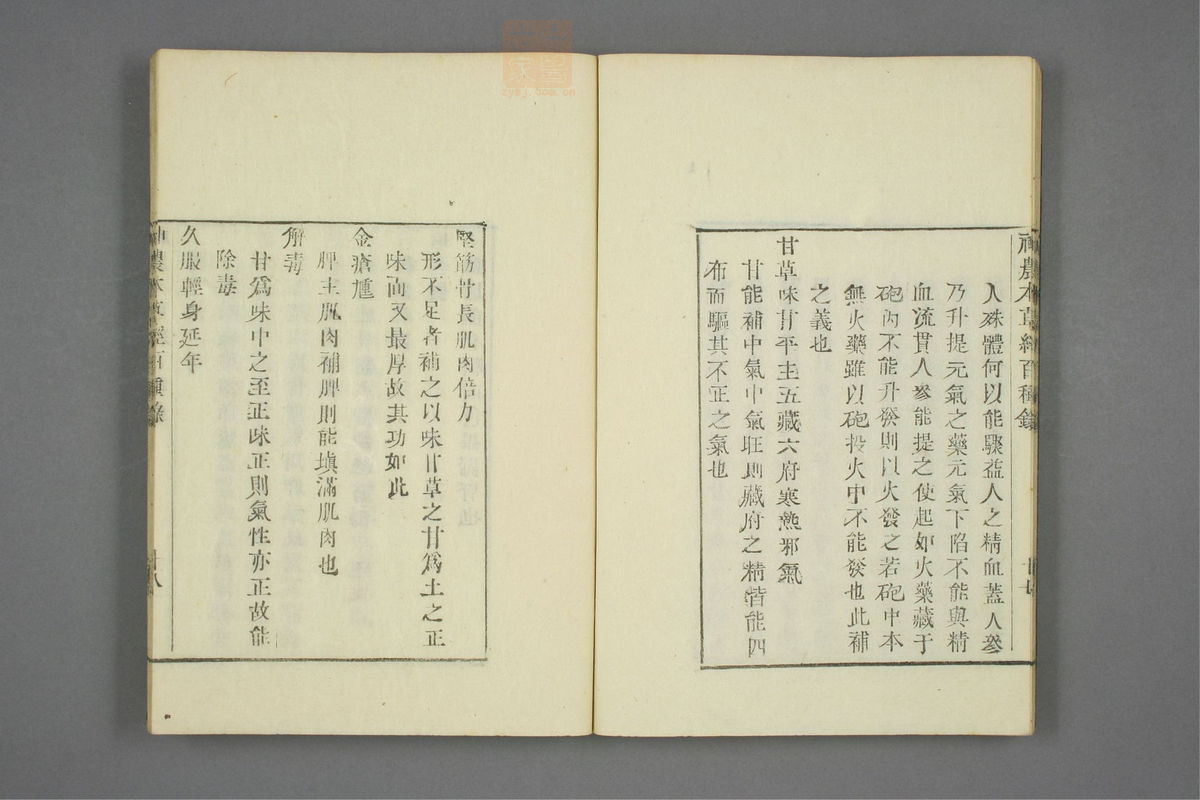 人殊體何以能驟益人之精血蓋人參
乃升提元氣之藥元氣下陷不能與精
血流貫人參能提之使起如火藥藏于
砲內不能升發則以火發之若砲中本
無火藥雖以砲投火中不能發也此補
之義也
甘草味甘平主五藏六府寒熱邪氣
甘能補中氣中氣旺則藏府之精皆能四
布而驅其不正之氣也
堅筋骨長肌肉倍力
形不足者補之以味甘草之甘爲土之正
味而又最厚故其功如此
金瘡尰
脾主肌肉補脾則能塡滿肌肉也
解毒
甘爲味中之至正味正則氣性亦正故能
除毒
久服輕身延年
神農本草經百種錄
十八
zysj.com.cn